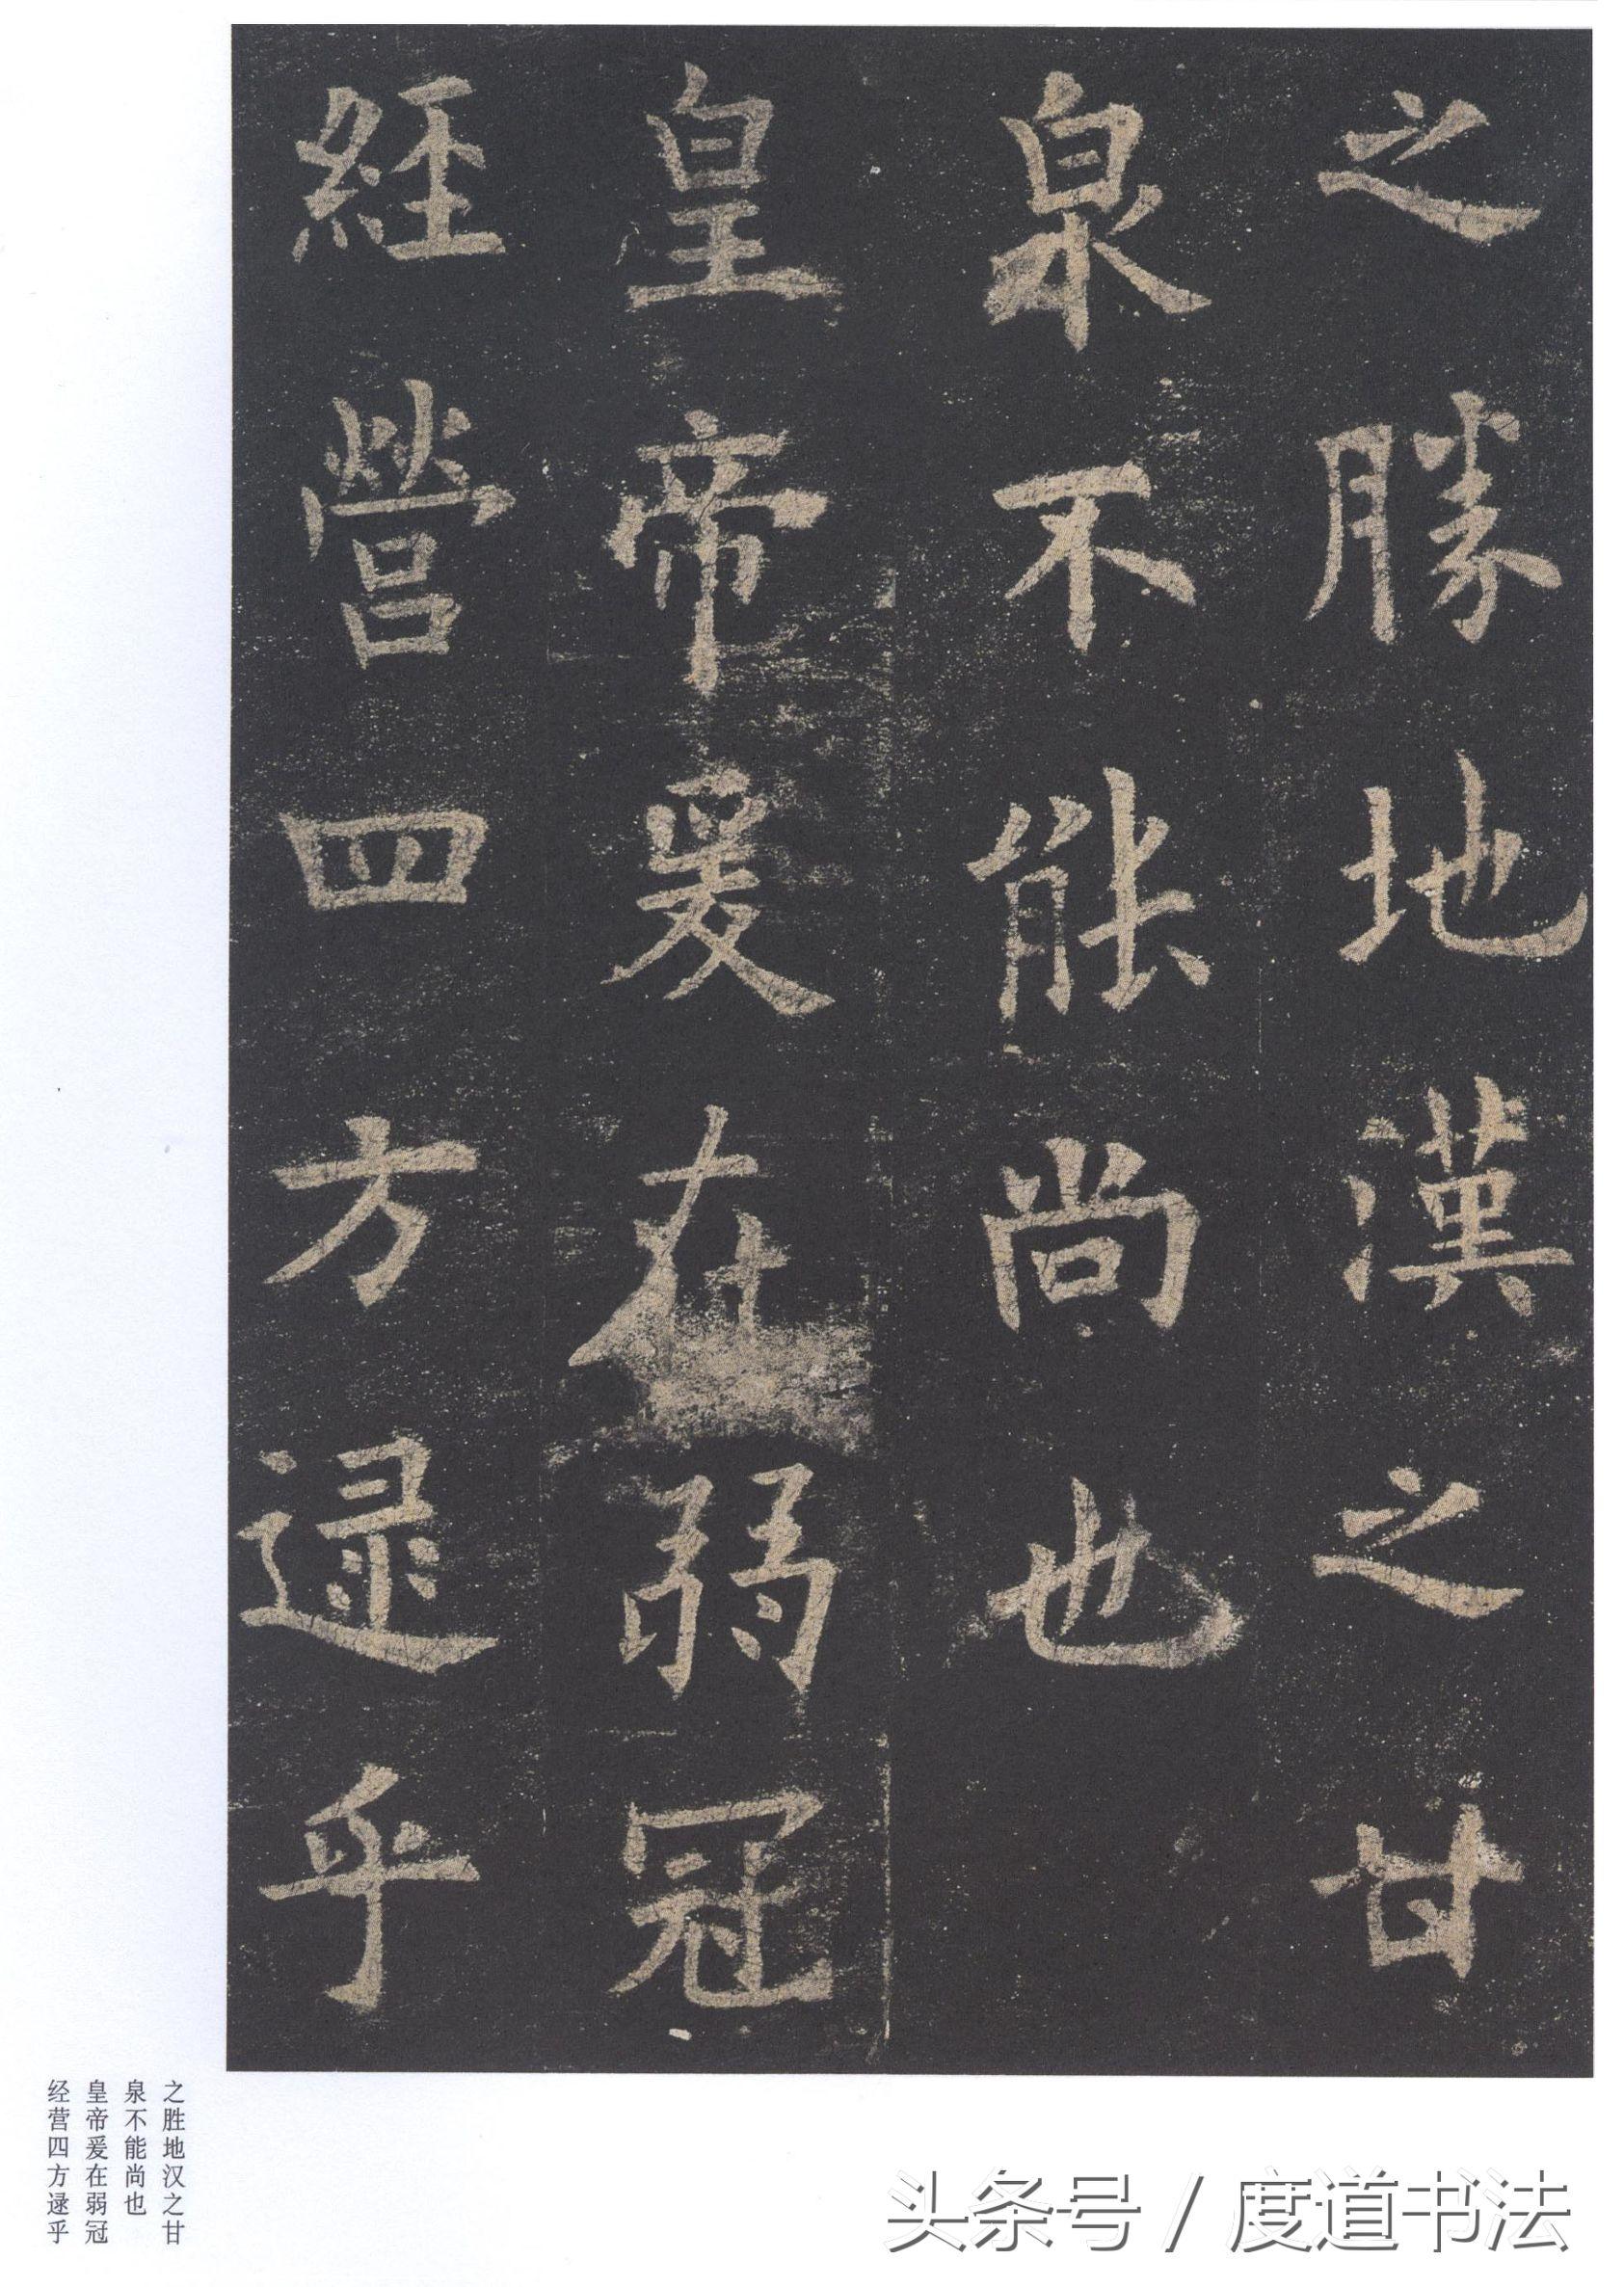 之勝地漢之甘
泉不能尚也
皇帝爰在弱冠
經營四方逯乎
之胜地汉之甘
泉不能尚也
皇帝爰在弱冠
经营四方逯乎
头条号 / 度道书法